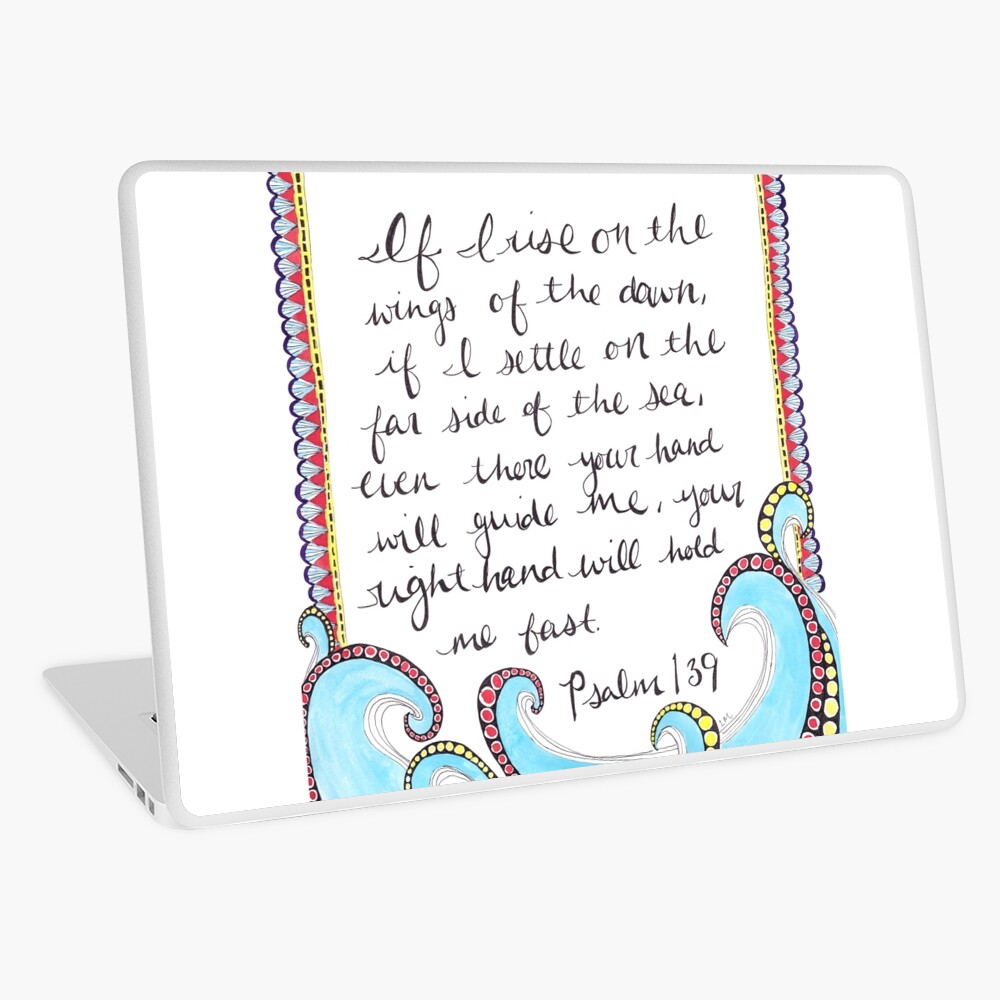 If I rise on the
wings of the dawn,
if I settle on the
far side of the sea,
even there your hand
will guide me, your
right hand will hold
me fast.
Psalm 139